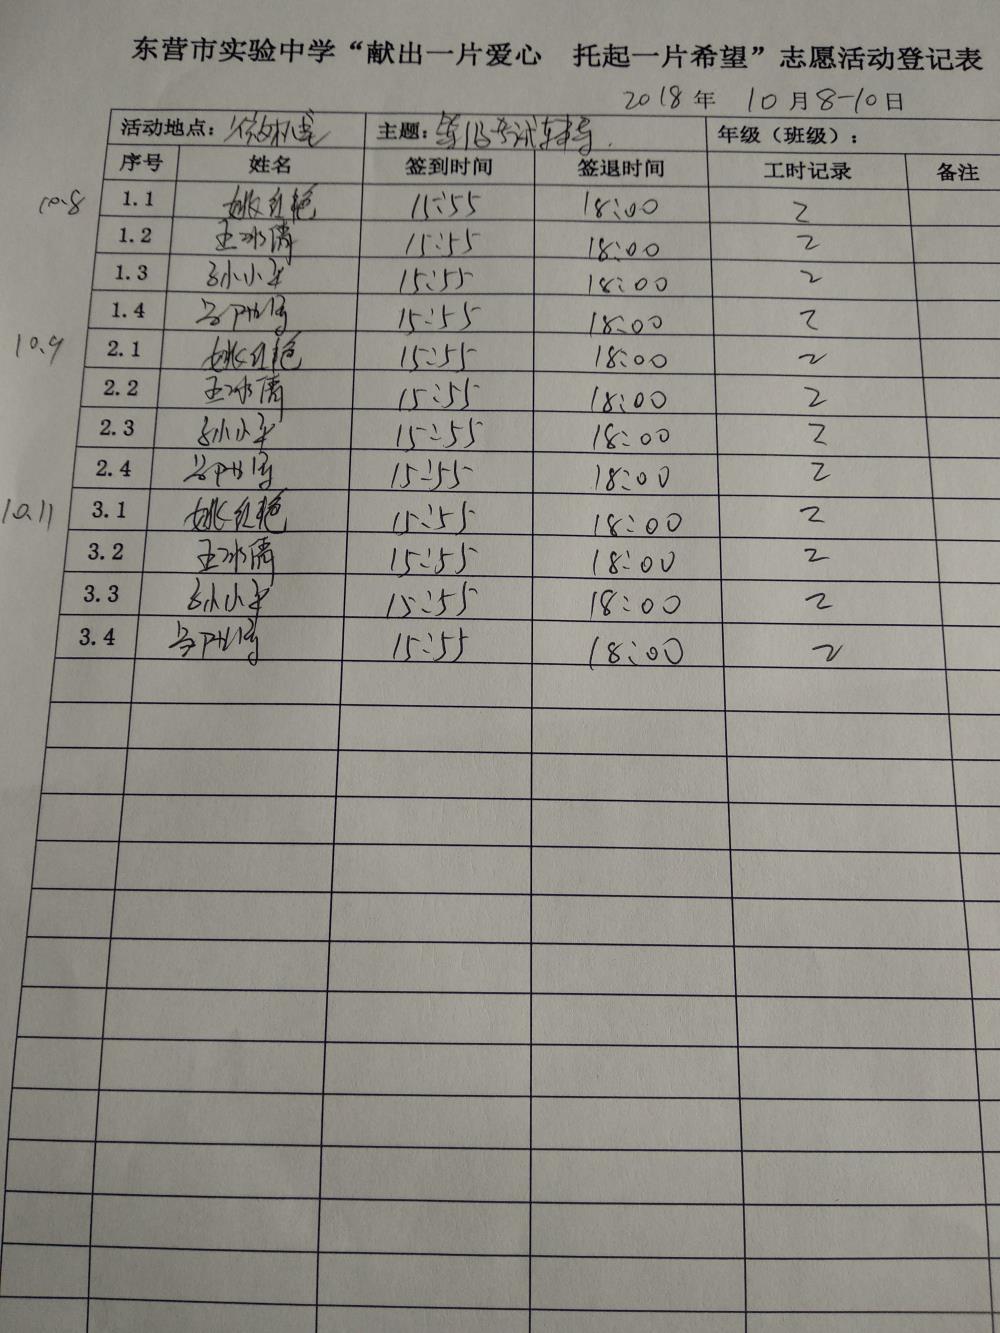 东营市实验中学“献出一片爱心 托起一片希望”志愿活动登记表
2018年 10月8-10日
活动地点：微机室 主题： 年级（班级）：
序号 姓名 签到时间 签退时间 工时记录 备注
10.8 1.1 姚红艳 15:55 18:00 2
1.2 王冰倩 15:55 18:00 2
1.3 孙小平 15:55 18:00 2
1.4 15:55 18:00 2
10.9 2.1 姚红艳 15:55 18:00 2
2.2 王冰倩 15:55 18:00 2
2.3 孙小平 15:55 18:00 2
2.4 15:55 18:00 2
10.11 3.1 姚红艳 15:55 18:00 2
3.2 王冰倩 15:55 18:00 2
3.3 孙小平 15:55 18:00 2
3.4 15:55 18:00 2